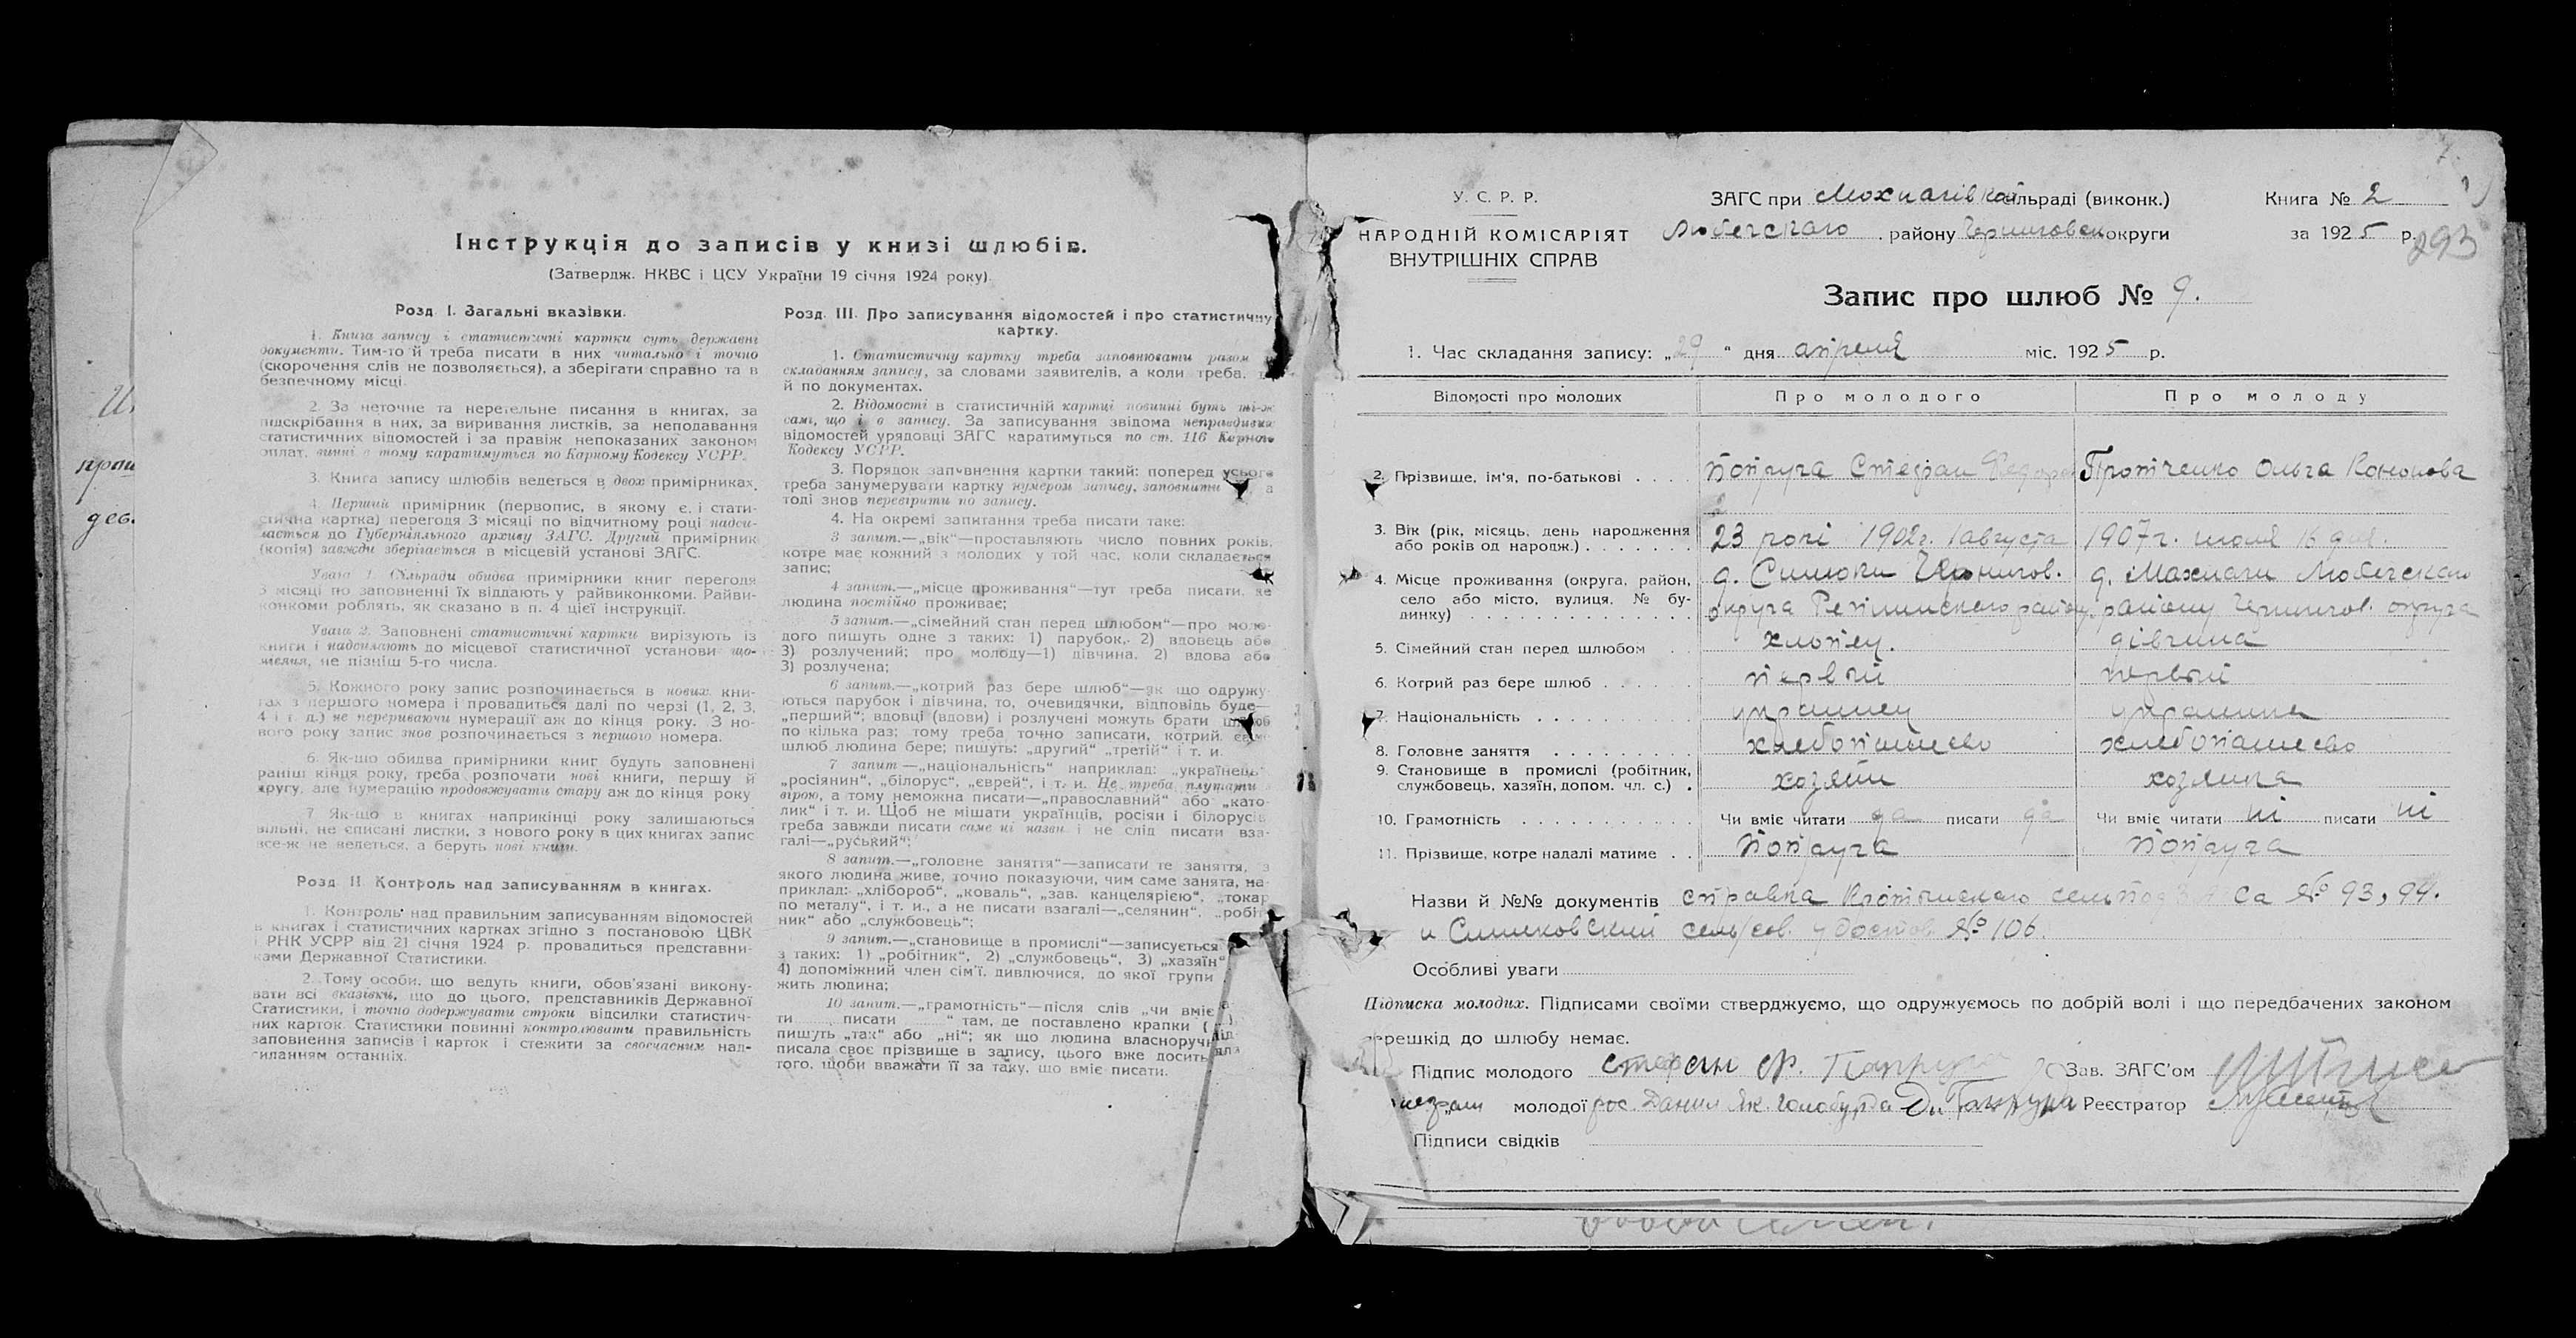 Інструкція до записів у книзі шлюбів.
(Затвердж. НКВС і ЦСУ України 19 січня 1924 року).
Розд. I. Загальні вказівки.
1. Книга запису і статистичні картки суть державні
документи. Тим-то й треба писати в них читально і точно
(скорочення слів не дозволяється), а зберігати справно та в
безпечному місці.
2. За неточне та неретельне писання в книгах, за
підскрібання в них, за виривання листків, за неподавання
статистичних відомостей і за правіж непоказаних законом
оплат, винні в тому каратимуться по Карному Кодексу УСРР.
3. Книга запису шлюбів ведеться в двох примірниках.
4. Перший примірник (первопис, в якому є, і стати-
стична картка) перегодя 3 місяці по відчитному році надси-
лається до Губерніяльного архиву ЗАГС. Другий примірник
(копія) завжди зберігається в місцевій установі ЗАГС.
Увага 1. Сільради обидва примірники книг перегодя
3 місяці по заповненні їх віддають у райвиконкоми. Райви-
конкоми роблять, як сказано в п. 4 цієї інструкції.
Увага 2. Заповнені статистичні картки вирізують із
книги і надсилають до місцевої статистичної установи що-
місяця, не пізніш 5-го числа.
5. Кожного року запис розпочинається в нових кни-
гах з першого номера і провадиться далі по черзі (1, 2, 3,
4 і т. д.) не перериваючи нумерації аж до кінця року. З но-
вого року запис знов розпочинається з першого номера.
6. Як-що обидва примірники книг будуть заповнені
раніш кінця року, треба розпочати нові книги, першу й
другу, але нумерацію продовжувати стару аж до кінця року
7. Як-що в книгах наприкінці року залишаються
вільні, не списані листки, з нового року в цих книгах запис
все-ж не ведеться, а беруть нові книги.
Розд. II. Контроль над записуванням в книгах.
1. Контроль над правильним записуванням відомостей
в книгах і статистичних картках згідно з постановою ЦВК
і РНК УСРР від 21 січня 1924 р. провадиться представни-
ками Державної Статистики.
2. Тому особи, що ведуть книги, обов'язані викону-
вати всі вказівки, що до цього, представників Державної
Статистики, і точно додержувати строки відсилки статистич-
них карток. Статистики повинні контролювати правильність
заповнення записів і карток і стежити за своєчасним над-
силанням останніх.
Розд. III. Про записування відомостей і про статистичну
картку.
1. Статистичну картку треба заповнювати разом з
складанням запису, за словами заявителів, а коли треба, то
й по документах.
2. Відомості в статистичній картці повинні буть ті-ж
самі, що і в запису. За записування звідома неправдивих
відомостей урядовці ЗАГС каратимуться по ст. 116 Карного
Кодексу УСРР.
3. Порядок заповнення картки такий: поперед усього
треба занумерувати картку нумером запису, заповнити а
тоді знов перевірити по запису.
4. На окремі запитання треба писати таке:
3 запит.—„вік“—проставляють число повних років,
котре має кожний з молодих у той час, коли складається
запис;
4 запит.—„місце проживання“—тут треба писати, де
людина постійно проживає;
5 запит.—„сімейний стан перед шлюбом“—про моло-
дого пишуть одне з таких: 1) парубок, 2) вдовець або
3) розлучений; про молоду—1) дівчина, 2) вдова або
3) розлучена;
6 запит.—„котрий раз бере шлюб“—як що одружу-
ються парубок і дівчина, то, очевидячки, відповідь буде—
„перший“; вдовці (вдови) і розлучені можуть брати шлюб
по кілька раз; тому треба точно записати, котрий
шлюб людина бере; пишуть: „другий“ „третій“ і т. и.
7 запит—„національність“ наприклад: „українець“
„росіянин“, „білорус“, „єврей“, і т. и. Не треба плутати з
вірою, а тому неможна писати—„православний“ або „като-
лик“ і т. и. Щоб не мішати українців, росіян і білорусів
треба завжди писати саме ці назви і не слід писати вза-
галі—„руський“;
8 запит.—„головне заняття“—записати те заняття, з
якого людина живе, точно показуючи, чим саме занята, на-
приклад: „хлібороб“, „коваль“, „зав. канцелярією“, „токар
по металу“, і т. и., а не писати взагалі—„селянин“, „робіт-
ник“ або „службовець“;
9 запит.—„становище в промислі“—записується
з таких: 1) „робітник“, 2) „службовець“, 3) „хазяїн“
4) допоміжний член сім'ї, дивлючися, до якої групи
жить людина;
10 запит.—„грамотність“—після слів „чи вміє
ти ...... писати ......“ там, де поставлено крапки (...)
пишуть „так“ або „ні“; як що людина власноручн
писала своє прізвище в запису, цього вже досить для
того, щоби вважати її за таку, що вміє писати.
У. С. Р. Р.
НАРОДНІЙ КОМІСАРІЯТ
ВНУТРІШНІХ СПРАВ
ЗАГС при сільраді (виконк.)
Любечскаго району Черниговск округи
Книга № 2
за 1925 р.
293
Запис про шлюб № 9.
1. Час складання запису: „29“ дня апреля міс. 1925 р.
Відомості про молодих
Про молодого
Про молоду
2. Прізвище, ім'я, по-батькові Попруга Стефан Федоров Протченко Ольга Кононова
3. Вік (рік, місяць, день народження
або років од народж.) 23 рокі 1902г. 1 августа 1907г. июля 16 дня.
4. Місце проживання (округа, район,
село або місто, вулиця, № бу-
динку)
д. Синюки Чернигов.
округа Репкинскаго району
д. Махнаги Любечскаго
району Чернигов. округа
5. Сімейний стан перед шлюбом хлопец. дівчина
6. Котрий раз бере шлюб первий первый
7. Національність украинец украинка
8. Головне заняття хлебопашево хлебопашево
9. Становище в промислі (робітник,
службовець, хазяїн, допом. чл. с.) хозяин хозяика
10. Грамотність Чи вміє читати да писати да Чи вміє читати ні писати ні
11. Прізвище, котре надалі матиме Попруга Попруга
Назви й №№ документів справка са № 93, 94.
и сель/сов. удостов. № 106.
Особливі уваги
Підписка молодих. Підписами своїми стверджуємо, що одружуємось по добрій волі і що передбачених законом
перешкід до шлюбу немає.
Підпис молодого Стефан Ф. Попруга Зав. ЗАГС'ом
молодої рос. Данил Як. Голобурда Реєстратор
Підписи свідків